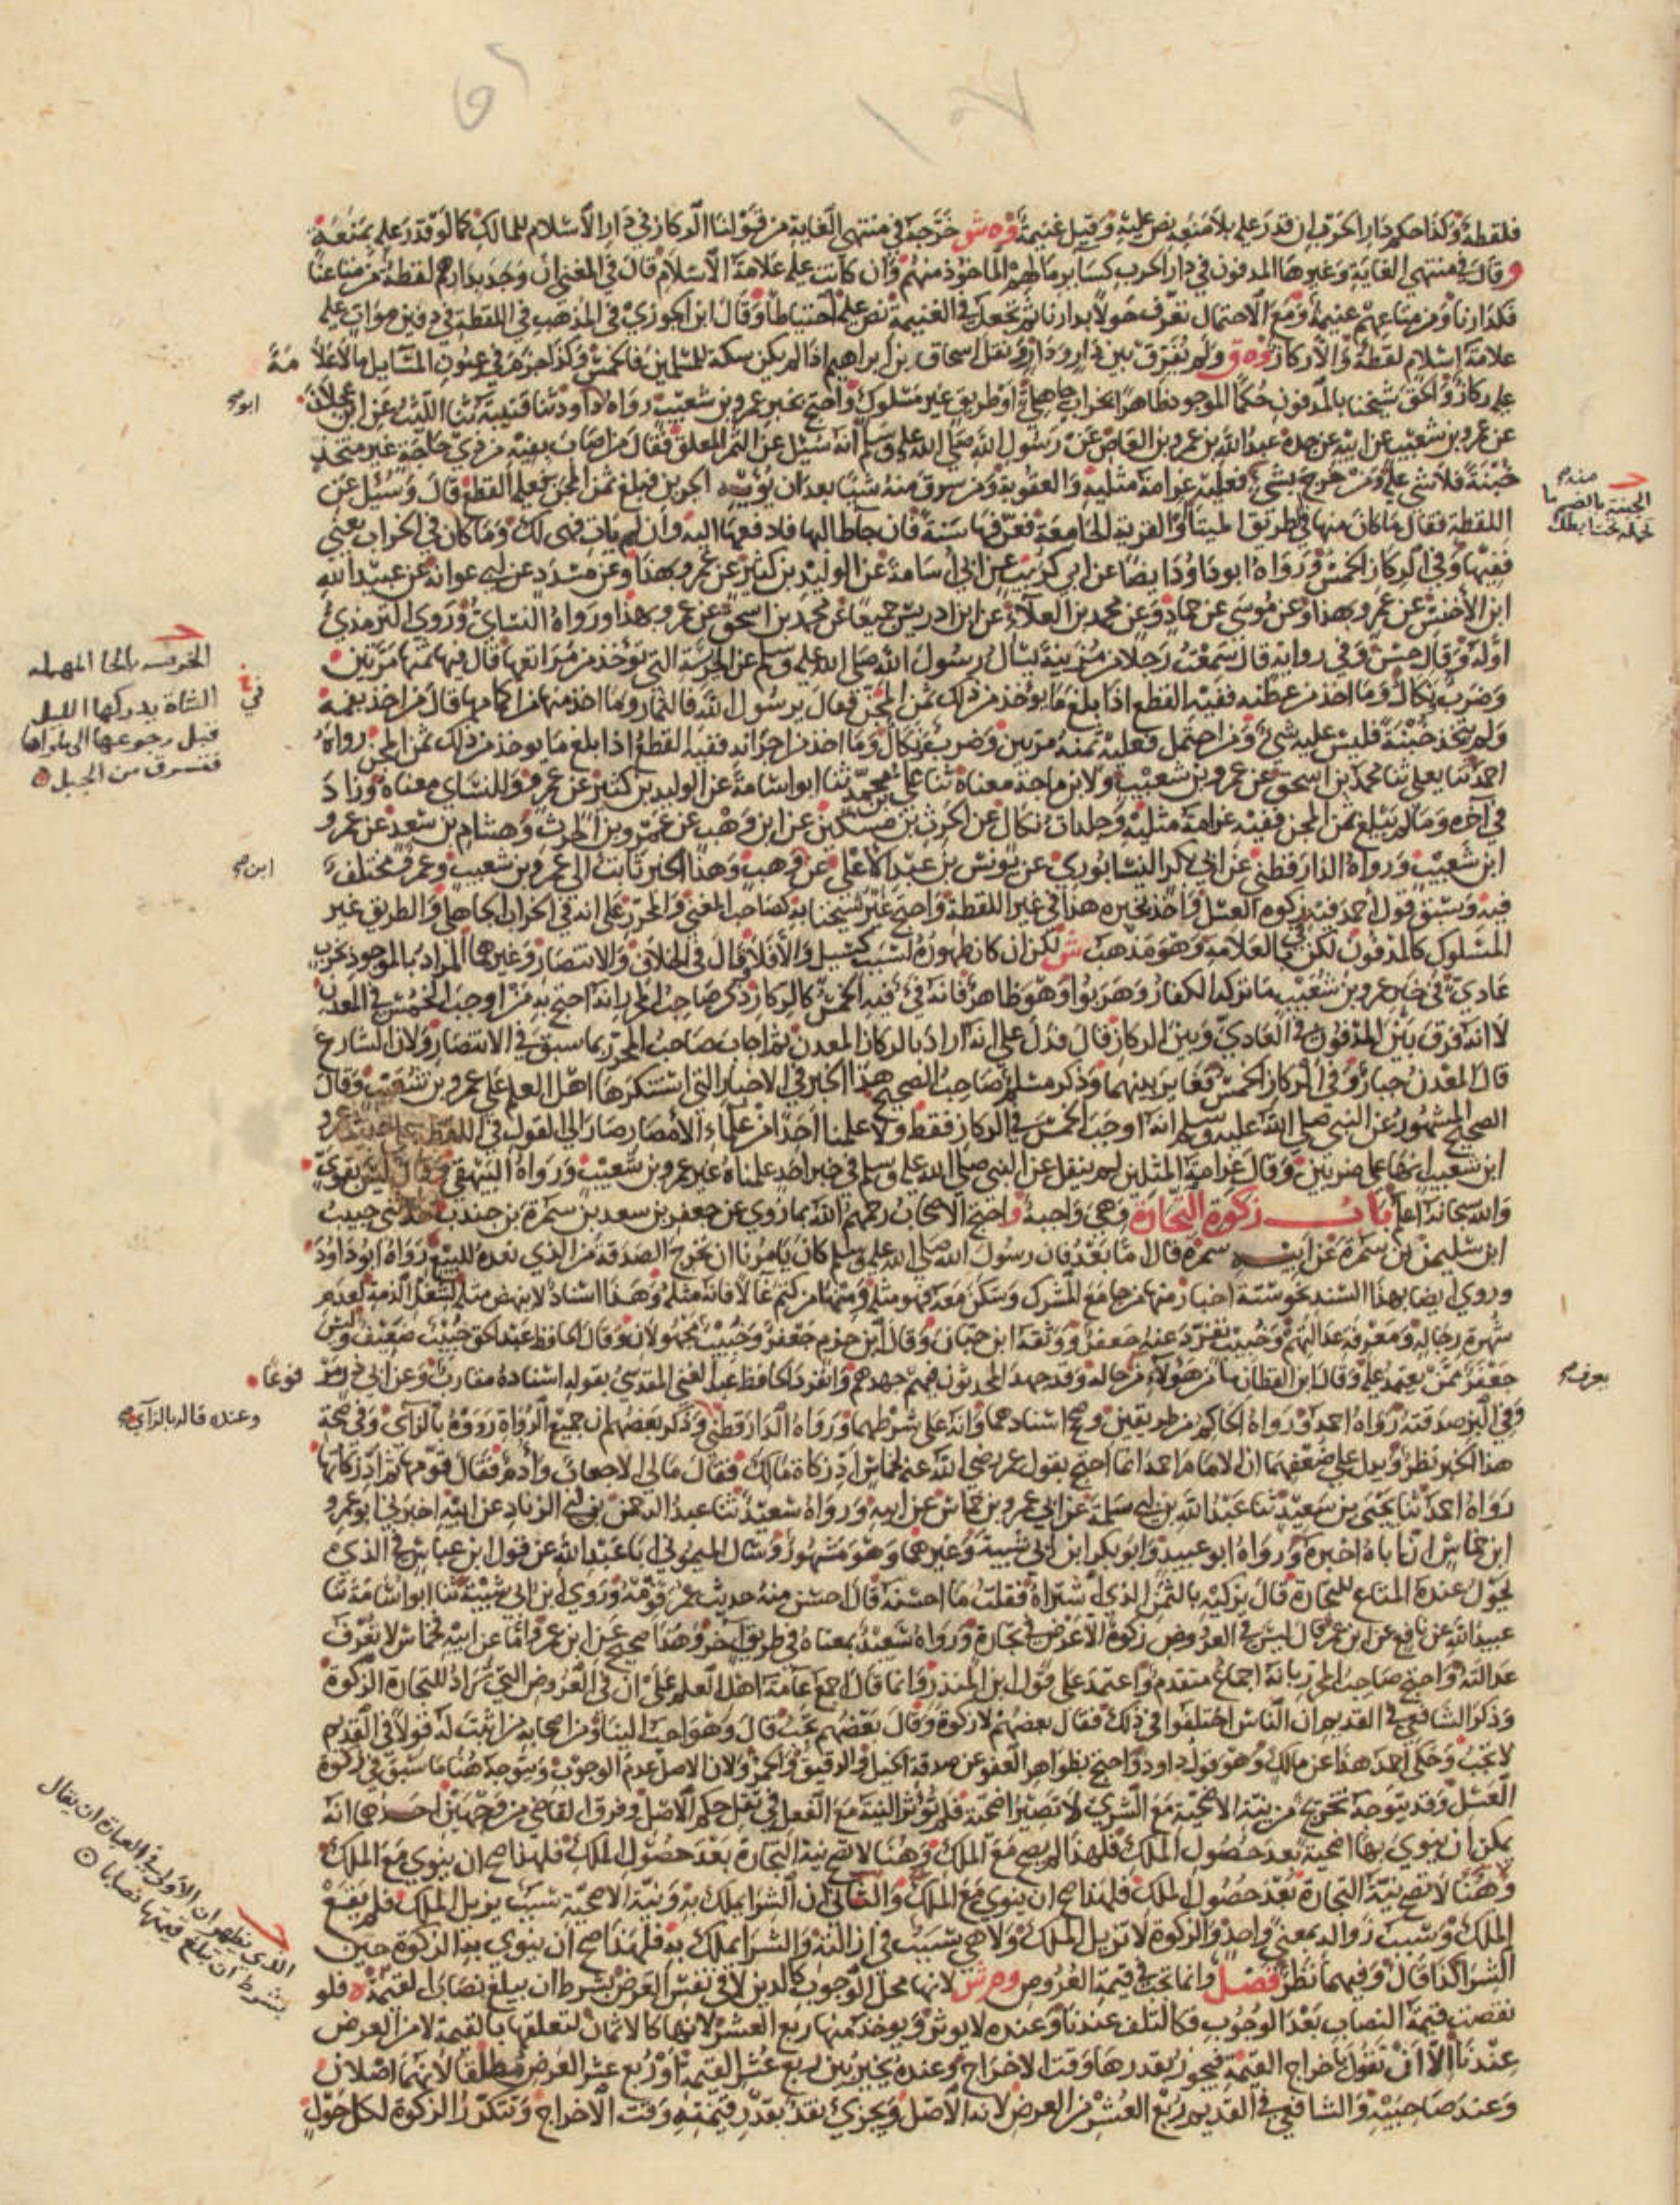 فلقطة وكذا حكم دار الحرب ان قدر عليه بلا منعه نص عليه وقيل غنيمة وه ش خرجه في منتهى الغاية من قولنا الركاز في دار الاسلام للمالك كما لو قدر عليه بمنعة
و قال في منتهى الغاية وغيرها المدفون في دار الحرب كسائر مالهم الماخوذ منهم وان كانت عليه علامة الاسلام قال في المغني ان وجد بدارهم لقطة من متاعنا
فكدارنا ومن متاعهم غنيمة ومع الاحتمال تعرف حولا بدارنا ثم تجعل في الغنيمة نص عليه احتياطا وقال ابن الجوزي في المذهب في اللقطة في دفين موات عليه
علامة اسلام لقطة والا ركاز ولم يفرق بين دار ودار ونقل اسحاق بن ابراهيم اذا لم يكن سكة للمسلمين فالخمس وكذا جزم في عيون المسايل ما لا علامة
عليه ركاز والحق شيخنا بالمدفون حكما الموجود ظاهرا بخراب جاهلي او طريق غير مسلوك واحتج بخبر عمرو بن شعيب رواه ابو داود ثنا قتيبة ثنا الليث عن ابن عجلان
عن عمرو بن شعيب عن ابيه عن جده عبد الله بن عمرو بن العاص عن رسول الله صلى الله عليه وسلم انه سئل عن الثمر المعلق فقال من اصاب بفيه من ذي حاجة غير متخذ
خبنة فلا شي عليه ومن خرج بشيء منه فعليه غرامة مثليه والعقوبة ومن سرق منه شيئا بعد ان يؤويه الجرين فبلغ ثمن المجن فعليه القطع قال وسئل عن
اللقطة فقال ما كان منها في الطريق الميتا والقرية الجامعة فعرفها سنة فان جا طالبها فادفعها اليه وان لم يات فهي لك وما كان في الخراب يعني
ففيها وفي الركاز الخمس ورواه ابو داود ايضا عن ابي كريب عن ابي اسامة عن الوليد بن كثير عن عمرو بهذا وعن مسدد عن ابي عوانه عن عبيد الله
ابن الاخنس عن عمرو بهذا وعن موسى عن حماد وعن محمد بن العلاء عن ابن ادريس جميعا عن محمد بن اسحق عن عمرو بهذا ورواه النساي وروى الترمذي
اوله وقال حسن وفي رواية قال سمعت رجلا من مزينة يسال رسول الله صلى الله عليه وسلم عن الحريسة التي توخذ من مراتعها قال فيها ثمنها مرتين
وضرب نكال وما اخذ من عطنه ففيه القطع اذا بلغ ما يوخذ من ذلك ثمن المجن فقال يرسول الله فالثمار وما اخذ منها من اكمامها قال من اخذ بفمه
ولم يتخذ خبنة فليس عليه شي ومن احتمل فعليه ثمنه مرتين وضرب ونكال وما اخذ من اجرانه ففيه القطع اذا بلغ ما يوخذ من ذلك ثمن المجن رواه
احمد ثنا يعلى ثنا محمد بن اسحق عن عمرو بن شعيب ولابن ماجة معناه ثنا علي بن محمد ثنا ابو اسامة عن الوليد بن كثير عن عمرو وللنساي معناه وزاد
في آخره وما لم يبلغ ثمن المجن ففيه غرامة مثليه وجلدات نكال عن الحرث بن مسكين عن ابن وهب عن عمرو بن الحرث وهشام بن سعد عن عمرو
ابن شعيب ورواه الدارقطني عن ابي بكر النيسابوري عن يونس بن عبد الاعلى عن ابن وهب وهذا الخبر ثابت الى عمرو بن شعيب وعمرو مختلف
فيه وسبق قول احمد فيه زكوة العسل واخذ بخبره هذا في غير اللقطة واحتج غير شيخنا به كصاحب المغني والمحرر على انه في الخراب الجاهلي والطريق غير
المسلوك كالمدفون لكن في بالعلامة وهو مذهب ش لكن ان كان ظهوره لسبب كسيل والا فلا وقال في الخلاف والانتصار وغيرهما المراد بالموجود بخرب
عادي في خبر عمرو بن شعيب ما تركه الكفار وهربوا وهو ظاهر فانه في فيه الخمس كالركاز ذكر صاحب المحرر انه احتج به من اوجب الخمس في المعدن
لا انه فرق بين المدفون في العادي وبين الركاز قال فدل على انه اراد بالركاز المعدن ثم اجاب صاحب المحرر بما سبق في الانتصار ولان الشارع
قال المعدن جبار وفي الركاز الخمس فغاير بينهما وذكر مسلم صاحب الصحيح هذا الخبر في الاخبار التي استنكرها اهل العلم على عمرو بن شعيب وقال
الصحيح المشهور عن النبي صلى الله عليه وسلم انه اوجب الخمس في الركاز فقط ولا علمنا احدا من علماء الامصار صار الى القول في اللقطة على حديث عمرو
ابن شعيب انها على ضربين وقال غرامة المثلين لم ينقل عن النبي صلى الله عليه وسلم في خبر احد علمناه غير عمرو بن شعيب ورواه البيهقي وقال ليس بقوي
والله سبحانه اعلم باب زكوة التجارة وهي واجبة واحتج الاصحاب رحمهم الله بما روي عن جعفر بن سعد بن سمرة بن جندب حدثني خبيب
ابن سليمن بن سمرة عن ابيه سمرة قال اما بعد فان رسول الله صلى الله عليه وسلم كان يامرنا ان نخرج الصدقة من الذي نعده للبيع رواه ابو داود
وروي ايضا بهذا السند نحو ستة اخبار منها من جامع المشرك وسكن معه فهو مثله ومنها من كتم غالا فانه مثله وهذا اسناد لا ينهض مثله لشغل الذمة لعدم
شهرة رجاله ومعرفة عدالتهم وخبيب تفرد عنه جعفر ووثقه ابن حبان وقال ابن حزم جعفر وخبيب مجهولان وقال الحافظ عبد الحق خبيب ضعيف وليس
جعفر ممن يعتمد عليه وقال ابن القطان ما من هؤلاء من يعرف حاله وقد جهد المحدثون فيهم جهدهم وانفرد الحافظ عبد الغني المقدسي بقوله اسناده مقارب وعن ابي ذر مرفوعا
وفي البز صدقته رواه احمد ورواه الحاكم من طريقين وصحح اسنادهما وانه على شرطهما ورواه الدارقطني وذكر بعضهم ان جميع الرواة رووه بالزاي وفي صحة
هذا الخبر نظر ويدل على ضعفهما ان الامام احمد انما احتج بقول عمر رضي الله عنه لحماس اد زكاة مالك فقال مالي الا جعاب وادم فقال قومها ثم اد زكاتها
رواه احمد ثنا يحيى بن سعيد ثنا عبد الله بن ابي سلمة عن ابي عمرو بن حماس عن ابيه ورواه سعيد ثنا عبد الرحمن بن ابي الزناد عن ابيه اخبرني ابو عمرو
ابن حماس ان اباه اخبره ورواه ابو عبيد وابو بكر ابن ابي شيبة وغيرهما وهو مشهور وسال الميموني ابا عبد الله عن قول ابن عباس في الذي
يحول عنده المتاع للتجارة قال يزكيه بالثمن الذي اشتراه فقلت ما احسنه قال احسن منه حديث عمر قومه وروى ابن ابي شيبة ثنا ابو اسامة ثنا
عبيد الله عن نافع عن ابن عمر قال ليس في العروض زكوة الا عرض في تجارة ورواه سعيد بمعناه في طريق آخر وهذا صحيح عن ابن عمر واما عن ابيه فحماس لا تعرف
عدالته واحتج صاحب المحرر بانه اجماع متقدم واعتمد على قول ابن المنذر وانما قال اجمع عامة اهل العلم على ان في العروض التي تراد للتجارة الزكوة
وذكر الشافعي في القديم ان الناس اختلفوا في ذلك فقال بعضهم لا زكوة وقال بعضهم تجب قال وهو احب الينا ومن اصحابه من اثبت له قولا في القديم
لا تجب وحكى احمد هذا عن مالك وهو قول داود واحتج بظواهر العفو عن صدقة الخيل والرقيق والحمر ولان الاصل عدم الوجوب ويتوجه هنا ما سبق في زكوة
العسل وقد يتوجه تخريج من نية الاضحية مع الشرى لا تصير اضحية فلم تؤثر النية مع الفعل في نقل حكم الاصل وفرق القاضي من وجهين احدهما انه
يمكن ان ينوي بها اضحية بعد حصول الملك فلهذا لم يصح مع الملك وهنا لا تصح نية التجارة بعد حصول الملك فلهذا صح ان ينوي مع الملك
وهنا لا تصح نية التجارة بعد حصول الملك فلهذا صح ان ينوي مع الملك والثاني ان الشرا يملك به ونية الاضحية سبب يزيل الملك فلم يقع
الملك وسبب زواله بمعنى واحد والزكوة لا تزيل الملك ولا هي سبب في ازالته والشرا يملك به فلهذا صح ان ينوي به الزكوة حين
الشرا كذا قال وفيهما نظر فصل وانما تجب في قيمة العروض وم ش لانها محل الوجوب كالدين لا في نفس العرض بشرط ان يبلغ نصابا لقيمته ه فلو
نقصت قيمة النصاب بعد الوجوب فكالتلف عندنا وعنده لا يوثر ويوخذ منها ربع العشر لانها كالاثمان لتعلقها بالقيمة لا من العرض
عندنا الا ان نقول باخراج القيمة فيجوز بقدرها وقت الاخراج وعنده يخير بين ربع عشر القيمة او ربع عشر العرض مطلقا لانهما اصلان
وعند صاحبيه والشافعي في القديم ربع العشر من العرض لانه الاصل ويجزئ نقد بقدر قيمته وقت الاخراج وتتكرر الزكوة لكل حول
ابو صح
منه صح
الخبنة بالضم ما
تحمله تحت ابطك
الحريسه بالحا المهمله
الشاة يدركها الليل
قبل رجوعها الى ماواها
فتسرق من الجبل
في
ابن صح
يعرف صح
وعنده قاله بالزاي صح
الذي يظهر ان الاولى في العبارة ان يقال
بشرط ان تبلغ قيمتها نصابا